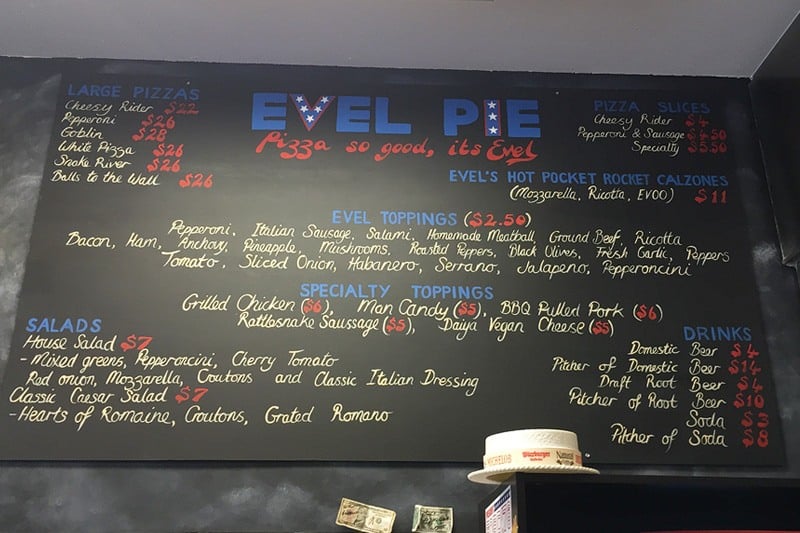 LARGE PIZZAS
Cheesy Rider $22
Pepperoni $26
Goblin $28
White Pizza $26
Snake River $26
Balls to the Wall $26
EVEL PIE
Pizza so good, its Evel
PIZZA SLICES
Cheesy Rider $4
Pepperoni & Sausage $4.50
Specialty $5.50
EVEL'S HOT POCKET ROCKET CALZONES
(Mozzarella, Ricotta, EVOO) $11
EVEL TOPPINGS ($2.50)
Pepperoni, Italian Sausage, Salami, Homemade Meatball, Ground Beef, Ricotta
Bacon, Ham, Anchovy, Pineapple, Mushrooms, Roasted Peppers, Black Olives, Fresh Garlic, Peppers
Tomato, Sliced Onion, Habanero, Serrano, Jalapeno, Pepperoncini
SPECIALTY TOPPINGS
Grilled Chicken ($6), Man Candy ($5), BBQ Pulled Pork ($6)
Rattlesnake Saussage ($5), Daiya Vegan Cheese ($5)
SALADS
House Salad $7
- Mixed greens, Pepperoncini, Cherry Tomato
Red onion, Mozzarella, Croutons and Classic Italian Dressing
Classic Caesar Salad $7
- Hearts of Romaine, Croutons, Grated Romano
DRINKS
Domestic Beer $4
Pitcher of Domestic Beer $14
Draft Root Beer $4
Pitcher of Root Beer $10
Soda $3
Pitcher of Soda $8